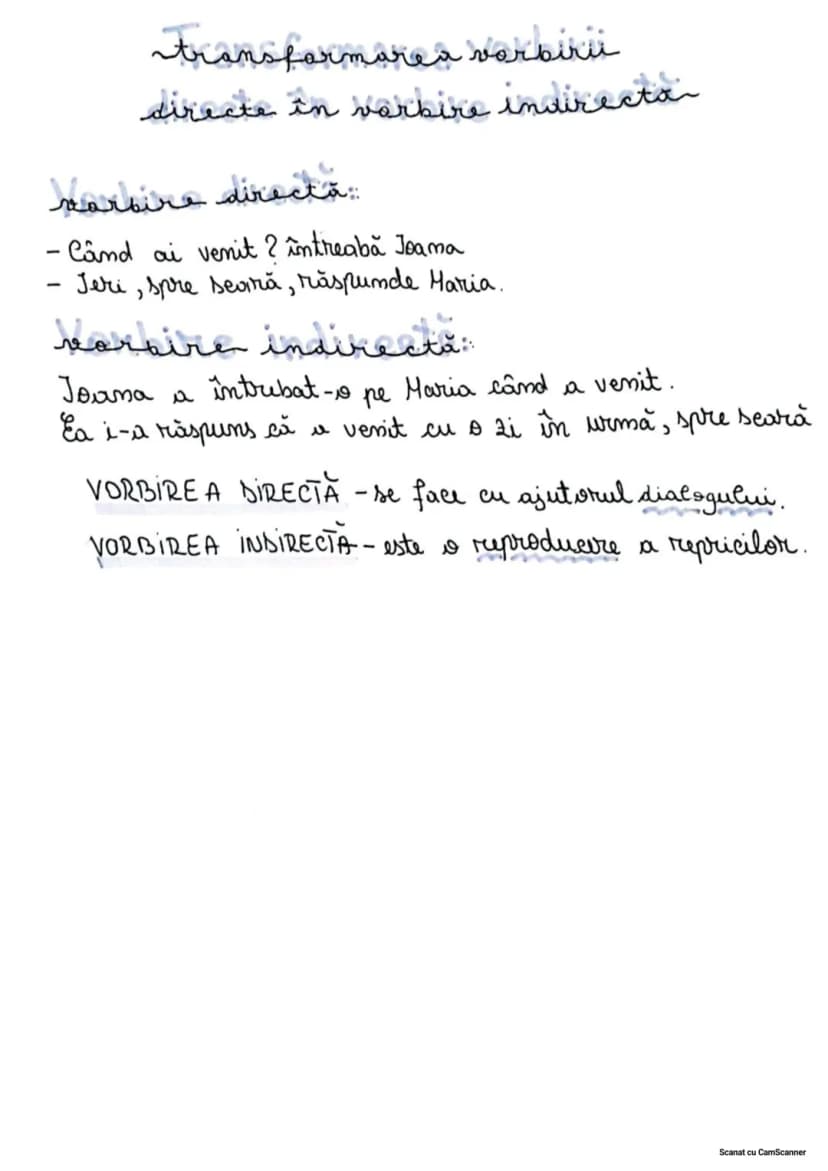 Transformarea vorbirii
directe în vorbire indirectă
Vorbire directă:
- Când ai venit? întreabă Ioana
- Ieri, spre seară, răspunde Maria.
Vorbire indirectă:
Ioana a întrubat-o pe Maria când a venit.
Ea i-a răspuns că a venit cu o zi în urmă, spre seară
VORBIREA DIRECTĂ - se face cu ajutorul dialogului.
VORBIREA INDIRECTĂ - este o reproducere a repricilor.
Scanat cu CamScanner